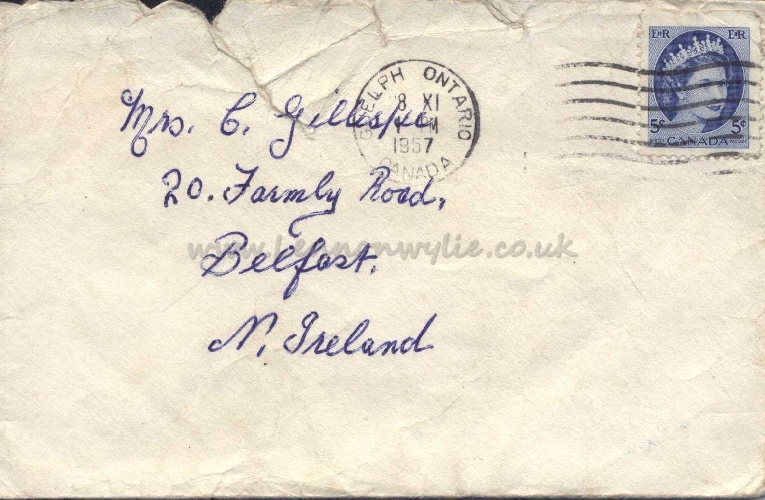 E II R E II R
5¢ CANADA 5¢
GUELPH ONTARIO
8 XI
PM
1957
CANADA
Mrs. C. Gillespie
20. Formby Road,
Belfast.
N. Ireland
www.lennonwylie.co.uk